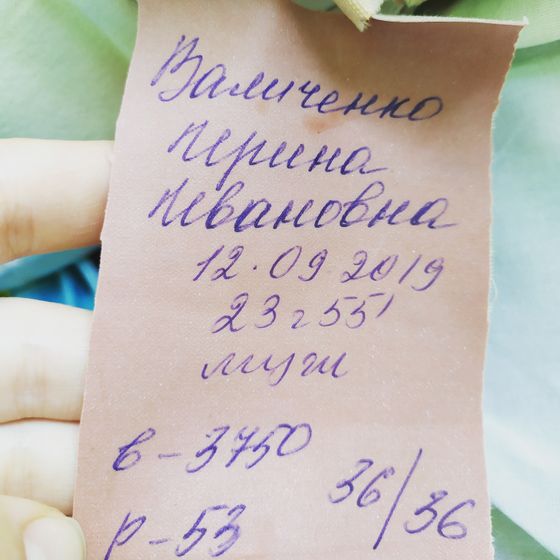 Валиченко
Ирина
Ивановна
12.09 2019
23 г 55'
муж
в - 3750
36/36
р - 53